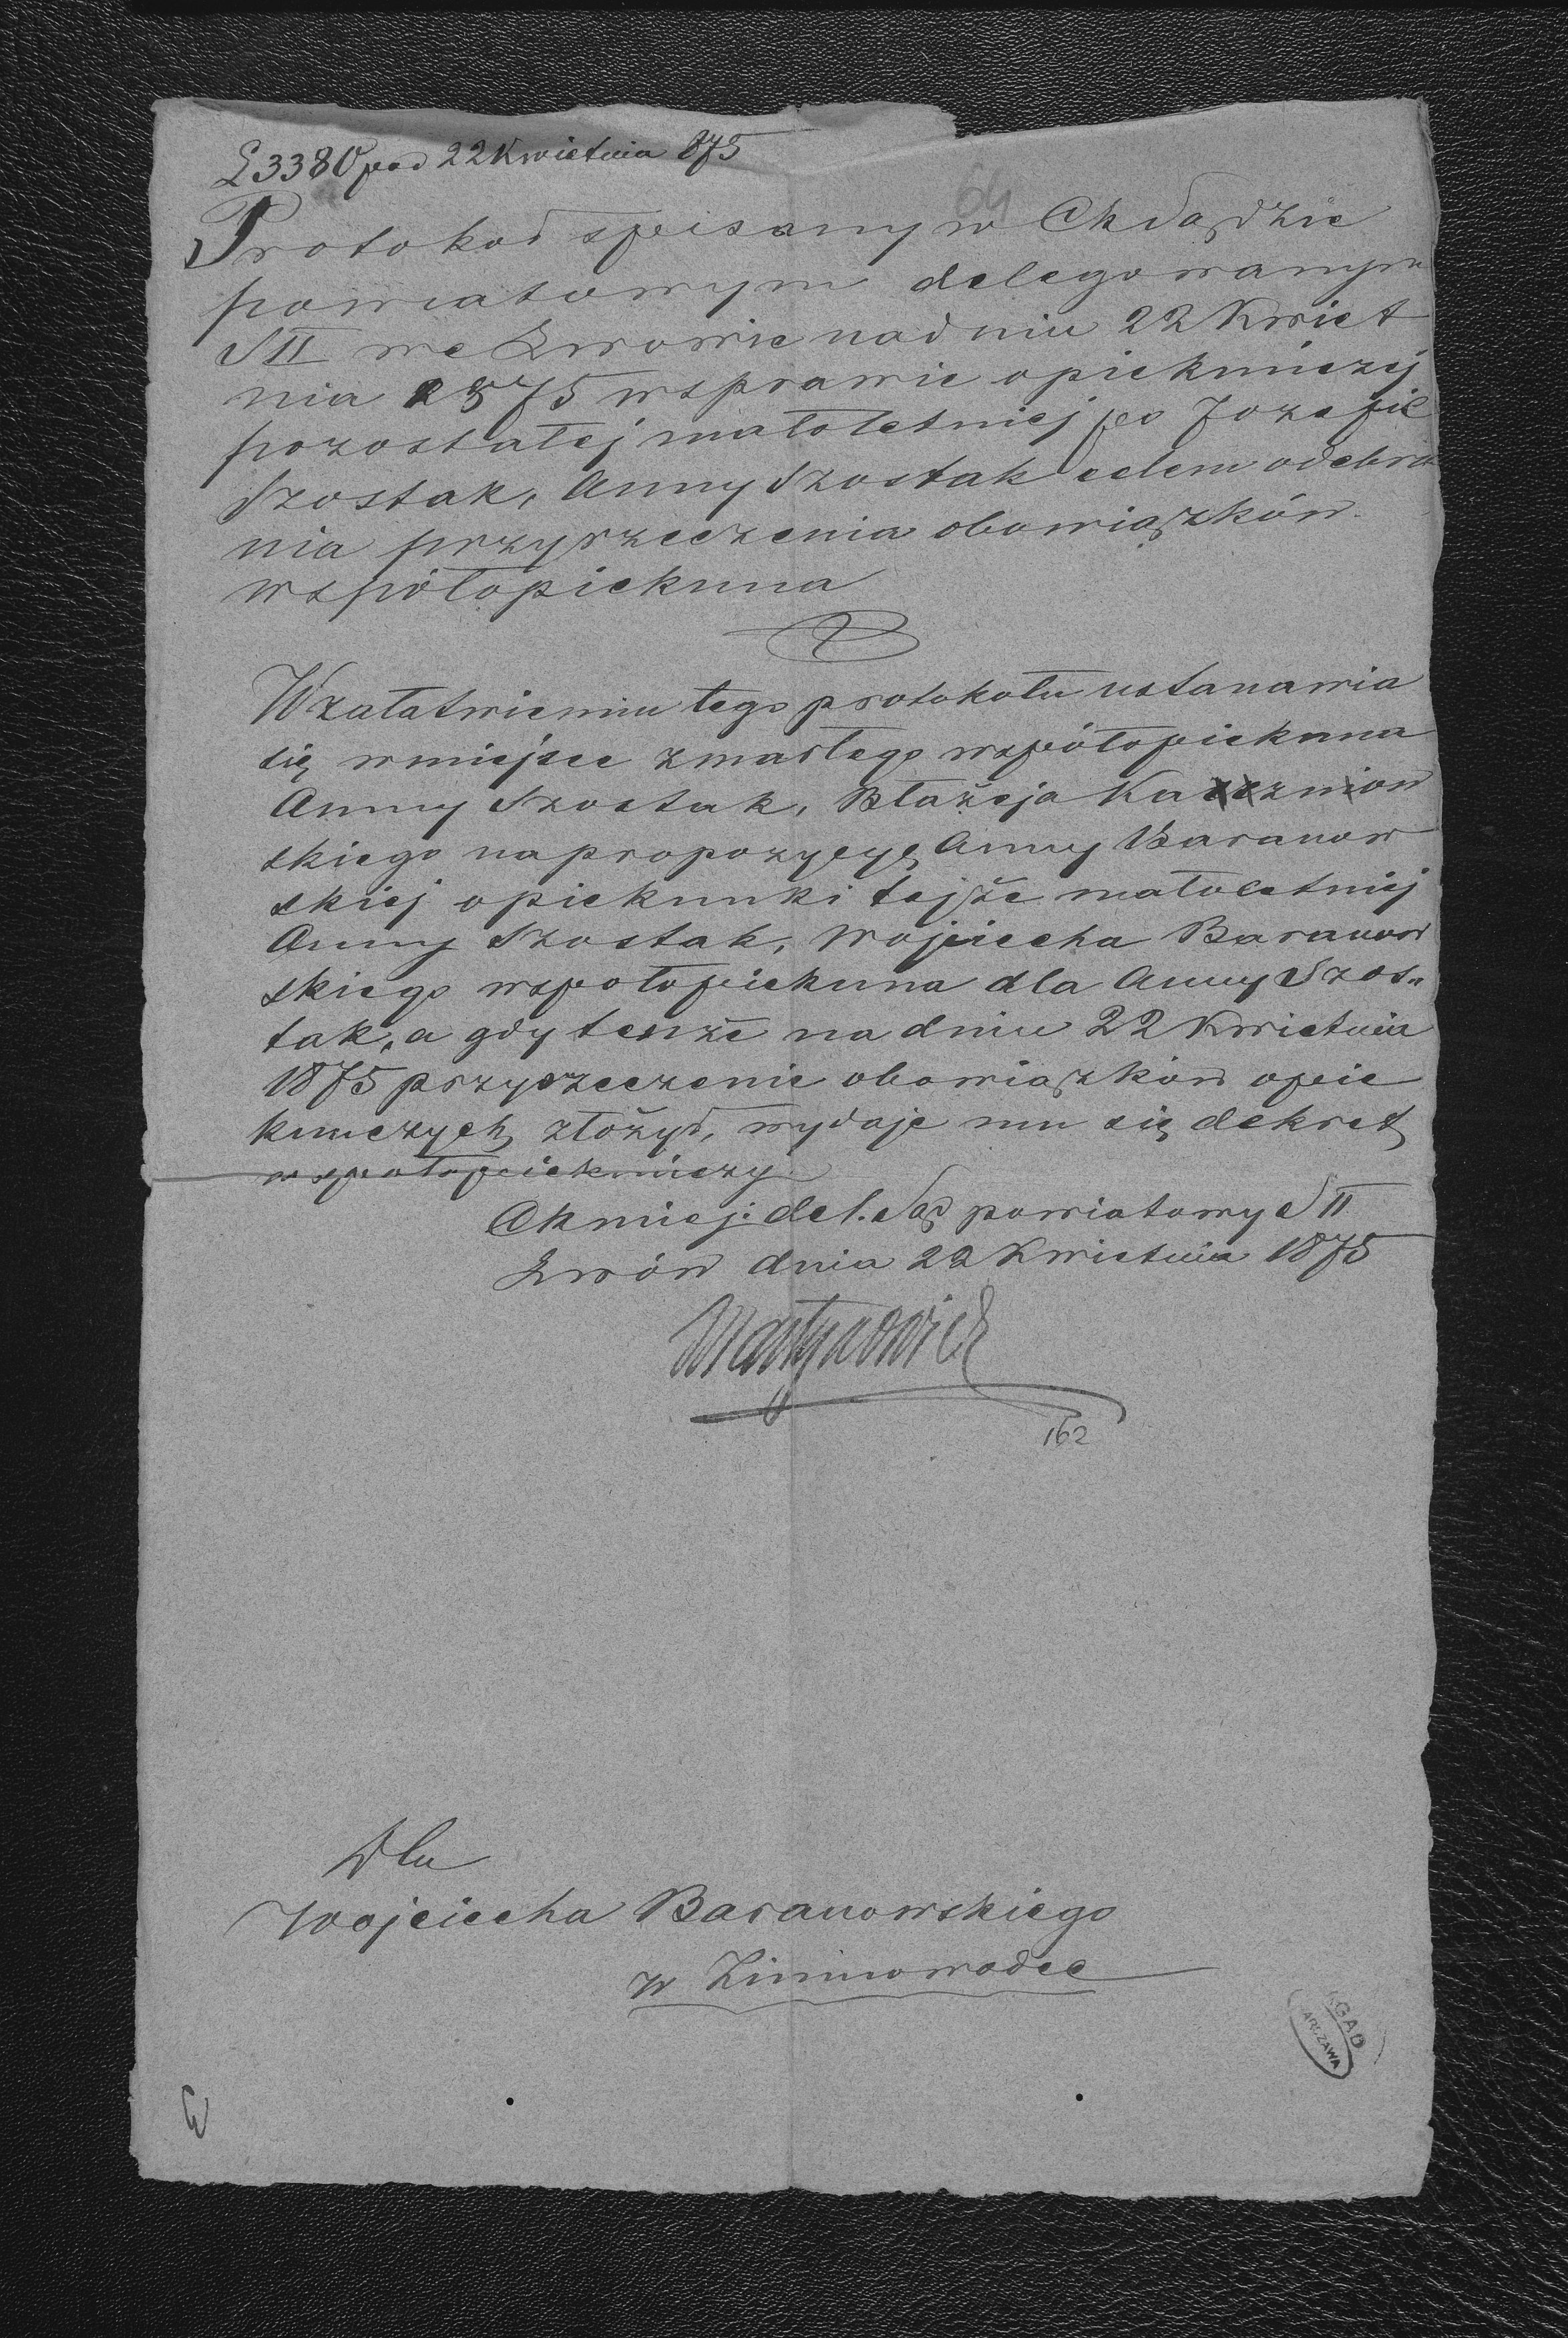 L 3380 pod 22 Kwietnia 875
64
Protokoł spisany w Ck Sądzie
powiatowym delegowanym
S II we Lwowie nadniu 22 Kwiet
nia 1875 wsprawie opiekuńczej
pozostałej małoletniej po Jozefie
Szostak, Anny Szostak celem odebra
nia przyrzeczenia obowiązków
współopiekuna
Wzałatwieniu tego protokołu ustanawia
się wmiejsce zmarłego współopiekuna
Anny Szostak, Błażeja
skiego napropozycyę Anny Baranow
skiej opiekunki tejże małoletniej
Anny Szostak, Wojciecha Baranow
skiego wspołopiekuna dla Anny Szos„
tak, a gdy tenże na dniu 22 Kwietnia
1875 przyrzeczenie obowiązków opie
kunczych złożył, wydaje mu się dekret
wspołopiekuńczy.
Ck miej: del. Sąd powiatowy S II
Lwów dnia 22 Kwietnia 1875
Martynowicz
162
Dla
Wojciecha Baranowskiego
w Zimnowodce
AGAD
WARSZAWA